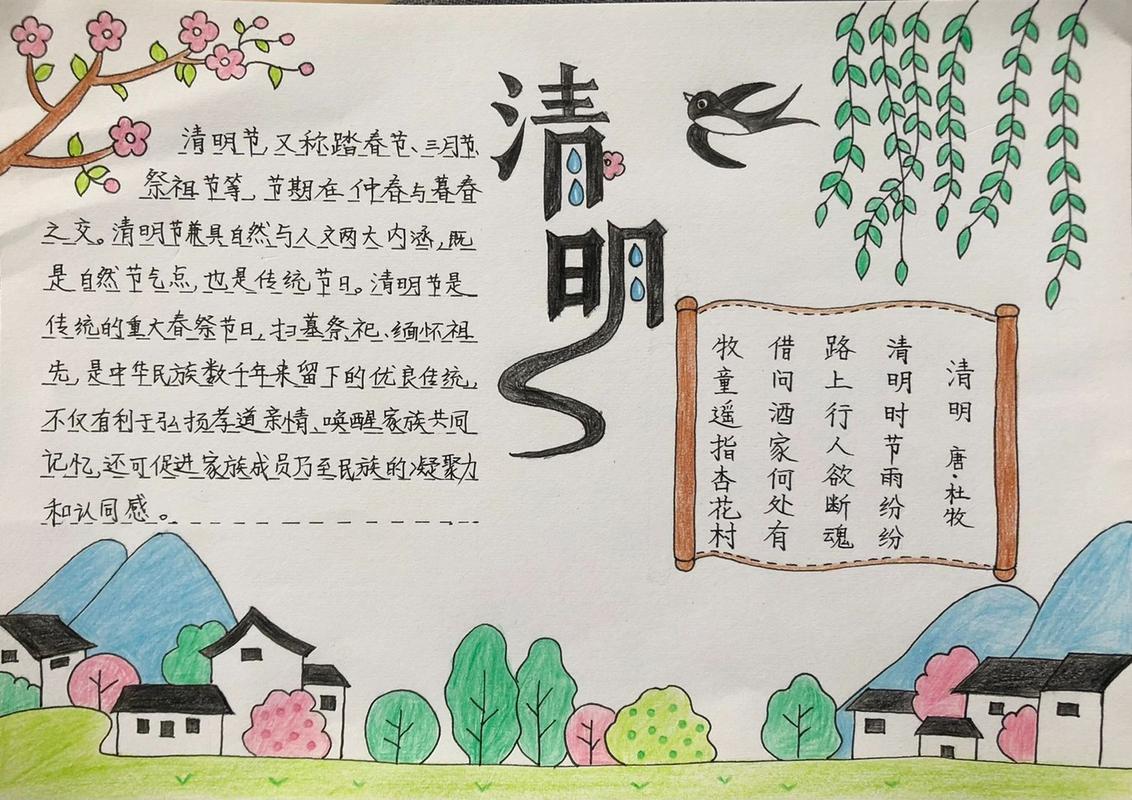 清明节,又称踏春节、三月节、
祭祖节等,节期在仲春与暮春
之交。清明节兼具自然与人文两大内涵,既
是自然节气点,也是传统节日。清明节是
传统的重大春祭节日,扫墓祭祀、缅怀祖
先,是中华民族数千年来留下的优良传统,
不仅有利于弘扬孝道亲情、唤醒家族共同
记忆,还可促进家族成员乃至民族的凝聚力
和认同感。
清明
清明 唐·杜牧
清明时节雨纷纷
路上行人欲断魂
借问酒家何处有
牧童遥指杏花村